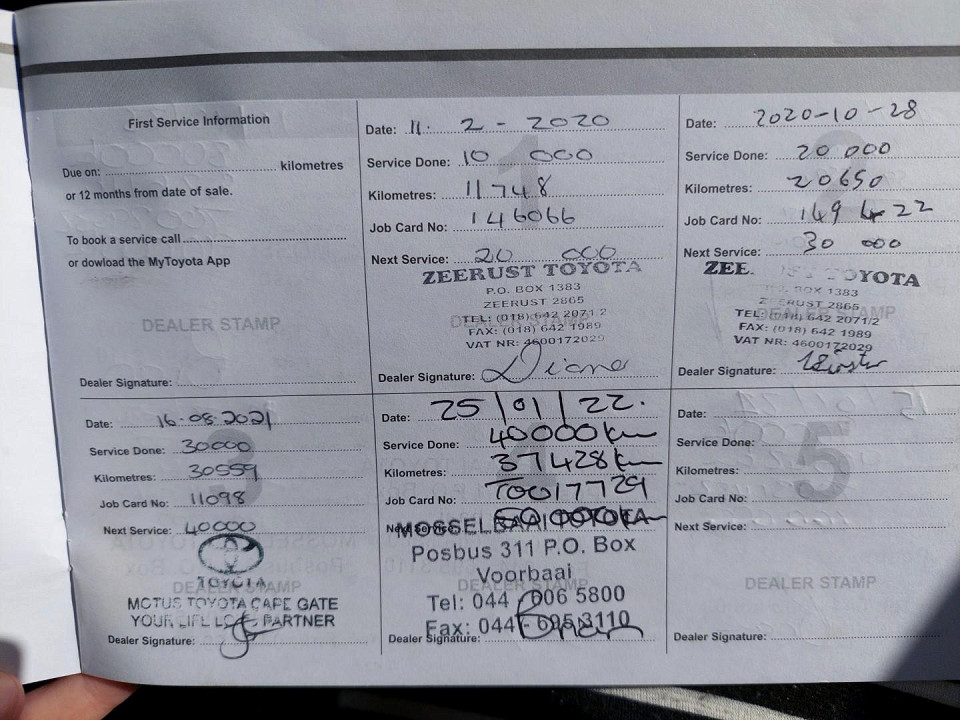 First Service Information
Due on: kilometres
or 12 months from date of sale.
To book a service call
or dowload the MyToyota App
DEALER STAMP
Dealer Signature:
Date: 11. 2 - 2020
Service Done: 10 000
Kilometres: 11748
Job Card No: 146066
Next Service: 20 000
ZEERUST TOYOTA
P.O. BOX 1383
ZEERUST 2865
TEL: (018) 642 2071/2
FAX: (018) 642 1989
VAT NR: 4600172029
Dealer Signature: Diana
Date: 2020-10-28
Service Done: 20 000
Kilometres: 20650
Job Card No: 149422
Next Service: 30 000
ZEE. TOYOTA
BOX 1383
ZEERUST 2865
TEL: (018) 642 2071/2
FAX: (018) 642 1989
VAT NR: 4600172029
DEALER STAMP
Dealer Signature:
3
Date: 16-08-2021
Service Done: 30000
Kilometres: 30559
Job Card No: 11098
Next Service: 40000
TOYOTA
DEALER STAMP
MOTUS TOYOTA CAPE GATE
YOUR LIFE LONG PARTNER
Dealer Signature:
Date: 25/01/22.
Service Done: 40000km
Kilometres: 37428km
Job Card No: T0017729
Next Service: 50 000km
MOSSELBAAI TOYOTA
Posbus 311 P.O. Box
Voorbaai
DEALER STAMP
Tel: 044 - 006 5800
Fax: 044 - 695 3110
Dealer Signature:
5
Date:
Service Done:
Kilometres:
Job Card No:
Next Service:
DEALER STAMP
Dealer Signature: